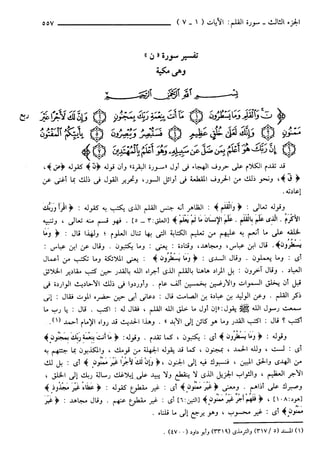 الجزء الثالث ـ سورة القلم: الآيات (١ - ٧)
٥٥٧
تفسير سورة « ن »
وهى مكية
بسم الله الرحمن الرحيم
ن وَالْقَلَمِ وَمَا يَسْطُرُونَ ① مَا أَنتَ بِنِعْمَةِ رَبِّكَ بِمَجْنُونٍ ② وَإِنَّ لَكَ لَأَجْرًا غَيْرَ
ربع
مَمْنُونٍ ③ وَإِنَّكَ لَعَلَىٰ خُلُقٍ عَظِيمٍ ④ فَسَتُبْصِرُ وَيُبْصِرُونَ ⑤ بِأَييِّكُمُ الْمَفْتُونُ
⑥ إِنَّ رَبَّكَ هُوَ أَعْلَمُ بِمَن ضَلَّ عَن سَبِيلِهِ وَهُوَ أَعْلَمُ بِالْمُهْتَدِينَ ⑦
قد تقدم الكلام على حروف الهجاء فى أول «سورة البقرة» وأن قوله ﴿ن﴾ كقوله ﴿ص﴾،
﴿ق﴾، ونحو ذلك من الحروف المقطعة فى أوائل السور، وتحرير القول فى ذلك بما أغنى عن
إعادته.
وقوله تعالى : ﴿وَالْقَلَمِ﴾ : الظاهر أنه جنس القلم الذى يكتب به كقوله : ﴿اقْرَأْ وَرَبُّكَ
الأَكْرَمُ . الَّذِي عَلَّمَ بِالْقَلَمِ . عَلَّمَ الإِنسَانَ مَا لَمْ يَعْلَمْ﴾ [العلق:٣ - ٥] . فهو قسم منه تعالى ، وتنبيه
لخلقه على ما أنعم به عليهم من تعليم الكتابة التى بها تنال العلوم ؛ ولهذا قال : ﴿وَمَا
يَسْطُرُونَ﴾. قال ابن عباس، ومجاهد، وقتادة : يعنى: وما يكتبون . وقال ابن عباس :
أى : وما يعملون . وقال السدى : ﴿وَمَا يَسْطُرُونَ﴾ : يعنى الملائكة وما تكتب من أعمال
العباد . وقال آخرون : بل المراد هاهنا بالقلم الذى أجراه الله بالقدر حين كتب مقادير الخلائق
قبل أن يخلق السموات والأرضين بخمسين ألف عام . وأوردوا فى ذلك الأحاديث الواردة فى
ذكر القلم . وعن الوليد بن عبادة بن الصامت قال : دعانى أبى حين حضره الموت فقال : إنى
سمعت رسول الله ﷺ يقول:«إن أول ما خلق الله القلم ، فقال له : اكتب . قال : يا رب ما
أكتب ؟ قال : اكتب القدر وما هو كائن إلى الأبد» . وهذا الحديث قد رواه الإمام أحمد (١).
وقوله : ﴿وَمَا يَسْطُرُونَ﴾ أى : يكتبون ، كما تقدم . وقوله: ﴿مَا أَنتَ بِنِعْمَةِ رَبِّكَ بِمَجْنُونٍ﴾
أى : لست ، ولله الحمد ، بمجنون ، كما قد يقوله الجهلة من قومك ، والمكذبون بما جئتهم به
من الهدى والحق المبين ، فنسبوك فيه إلى الجنون ، ﴿وَإِنَّ لَكَ لأَجْرًا غَيْرَ مَمْنُونٍ﴾ أى : بل لك
الأجر العظيم ، والثواب الجزيل الذى لا ينقطع ولا يبيد على إبلاغك رسالة ربك إلى الخلق ،
وصبرك على أذاهم . ومعنى ﴿غَيْرَ مَمْنُونٍ﴾ أى : غير مقطوع كقوله : ﴿عَطَاءً غَيْرَ مَجْذُوذٍ﴾
[هود:١٠٨] ، ﴿فَلَهُمْ أَجْرٌ غَيْرُ مَمْنُونٍ﴾ [التين:٦] أى : غير مقطوع عنهم . وقال مجاهد : ﴿غَيْرَ
مَمْنُونٍ﴾ أى : غير محسوب ، وهو يرجع إلى ما قلناه .
(١) المسند (٥ / ٣١٧) والترمذى (٣٣١٩) وأبو داود (٤٧٠٠) .